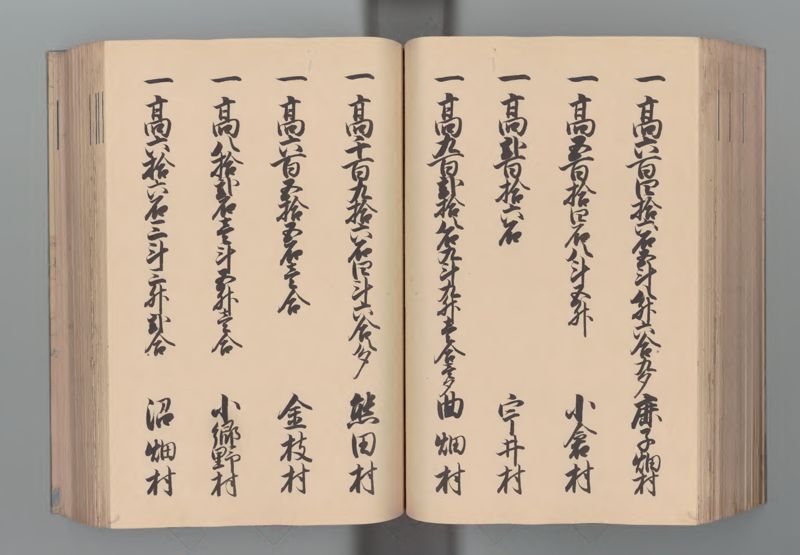 一 高六百四拾六石五斗八升六合九夕 麻子畑村
一 高五百拾四石八斗五升 小倉村
一 高弐百拾六石 宇井村
一 高九百弐拾八石九斗九升壱合壱夕 曲畑村
一 高千百九拾六石四斗六合八夕 熊田村
一 高六百五拾五石壱合 金枝村
一 高八拾弐石壱斗五升壱合 小郷野村
一 高六拾六石三斗三升弐合 沼畑村